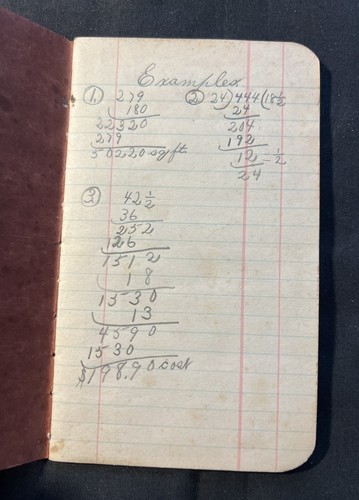 Examples
① 279
180
22320
279
50220 sq ft
② 24) 444 (18½
24
204
192
12 = ½
24
③ 42½
36
252
126
1512
18
1530
13
4590
1530
$198.90 cost